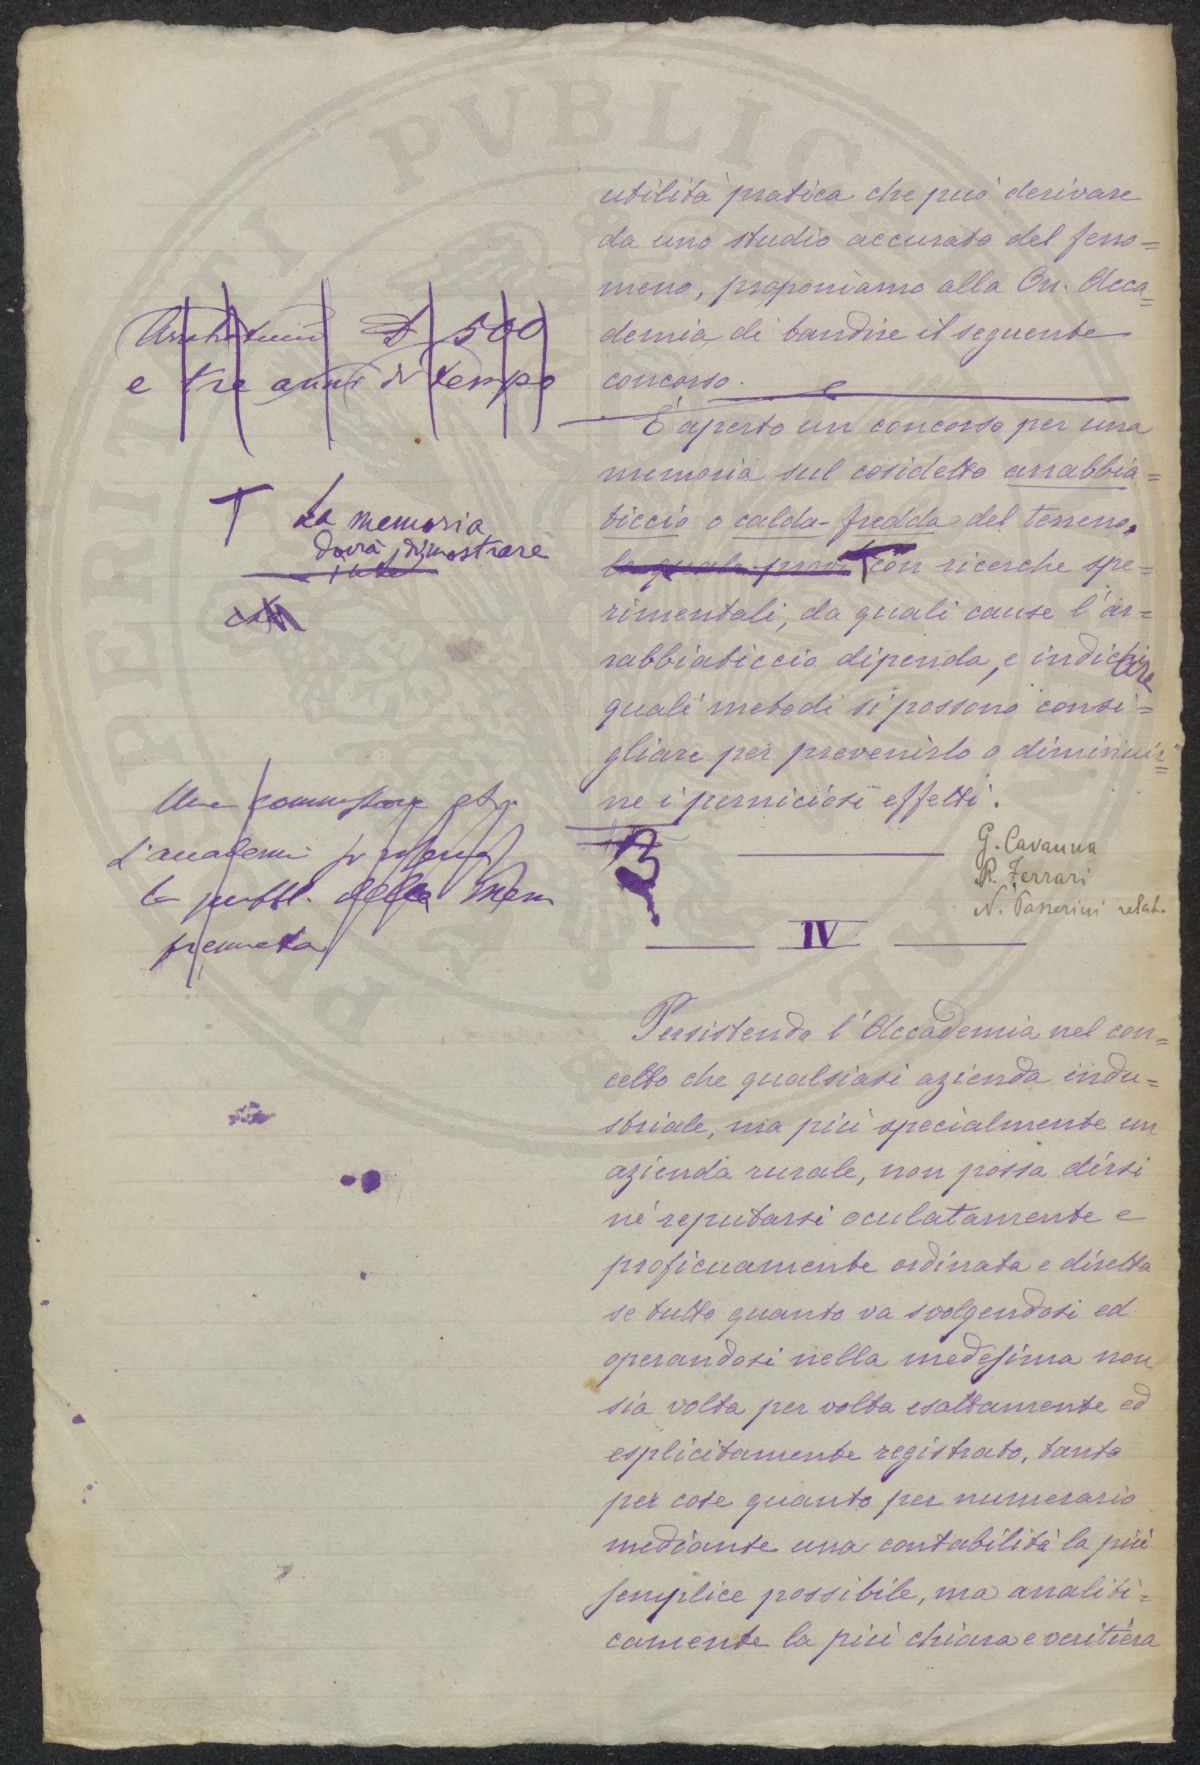 utilità pratica che può derivare
da uno studio accurato del feno=
meno, proponiamo alla On. Acca=
demia di bandire il seguente
concorso.
È aperto un concorso per una
memoria sul cosidetto arrabbia=
ticcio o calda-fredda del terreno,
la quale provi con ricerche spe=
rimentali, da quali cause l'ar=
rabbiaticcio dipenda, e indicare
quali metodi si possono consi=
gliare per prevenirlo o diminuir=
ne i perniciosi effetti.
£ 500
e tre anni di tempo
T La memoria
dovrà dimostrare
L'accademia
la pubbl. della Mem
premiata
3
G. Cavanna
R. Ferrari
N. Passerini relat.
IV
Persistendo l'Accademia nel con=
cetto che qualsiasi azienda indu=
striale, ma più specialmente un
azienda rurale, non possa dirsi
nè reputarsi oculatamente e
proficuamente ordinata e diretta
se tutto quanto va svolgendosi ed
operandosi nella medesima non
sia volta per volta esattamente ed
esplicitamente registrato, tanto
per cose quanto per numerario
mediante una contabilità la più
semplice possibile, ma analiti=
camente la più chiara e veritiera